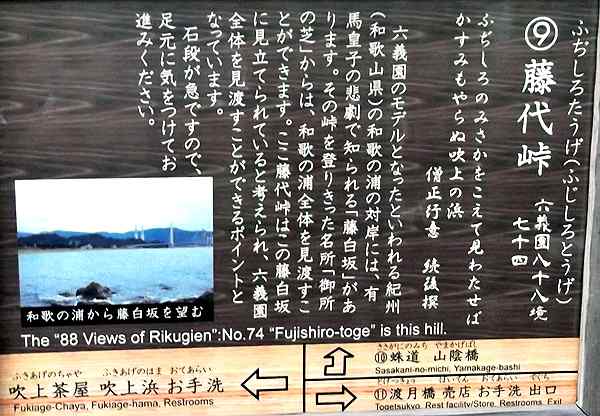 ふぢしろたうげ(ふじしろとうげ)
⑨藤代峠
六義園八十八境
七十四
ふぢしろのみさかをこえて見わたせば
かすみもやらぬ吹上の浜
僧正行意 続後撰
六義園のモデルとなったといわれる紀州
(和歌山県)の和歌の浦の対岸には、有
馬皇子の悲劇で知られる「藤白坂」があ
ります。その峠を登りきった名所「御所
の芝」からは、和歌の浦全体を見渡すこ
とができます。ここ藤代峠はこの藤白坂
に見立てられていると考えられ、六義園
全体を見渡すことができるポイントと
なっています。
石段が急ですので、
足元に気をつけてお
進みください。
和歌の浦から藤白坂を望む
The "88 Views of Rikugien":No.74 "Fujishiro-toge" is this hill.
ふきあげのちゃや ふきあげのはま おてあらい
吹上茶屋 吹上浜 お手洗
Fukiage-Chaya, Fukiage-hama, Restrooms
ささがにのみち やまかげばし
⑩蛛道 山陰橋
Sasakani-no-michi, Yamakage-bashi
⑪渡月橋 売店 お手洗 出口
Togetsukyo, Rest facility/Store, Restrooms, Exit